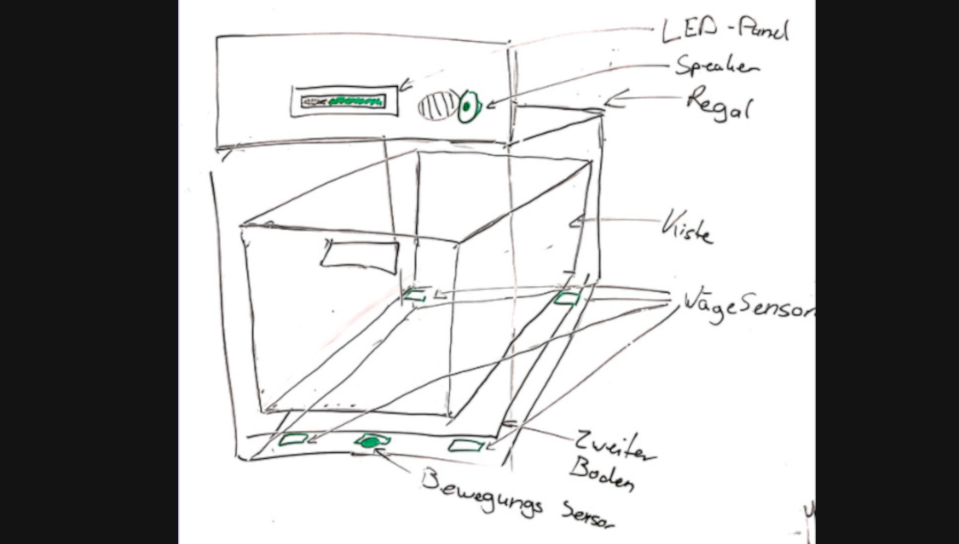 LED-Panel
Speaker
Regal
Kiste
WägeSensor
Zweiter
Boden
Bewegungs Sensor